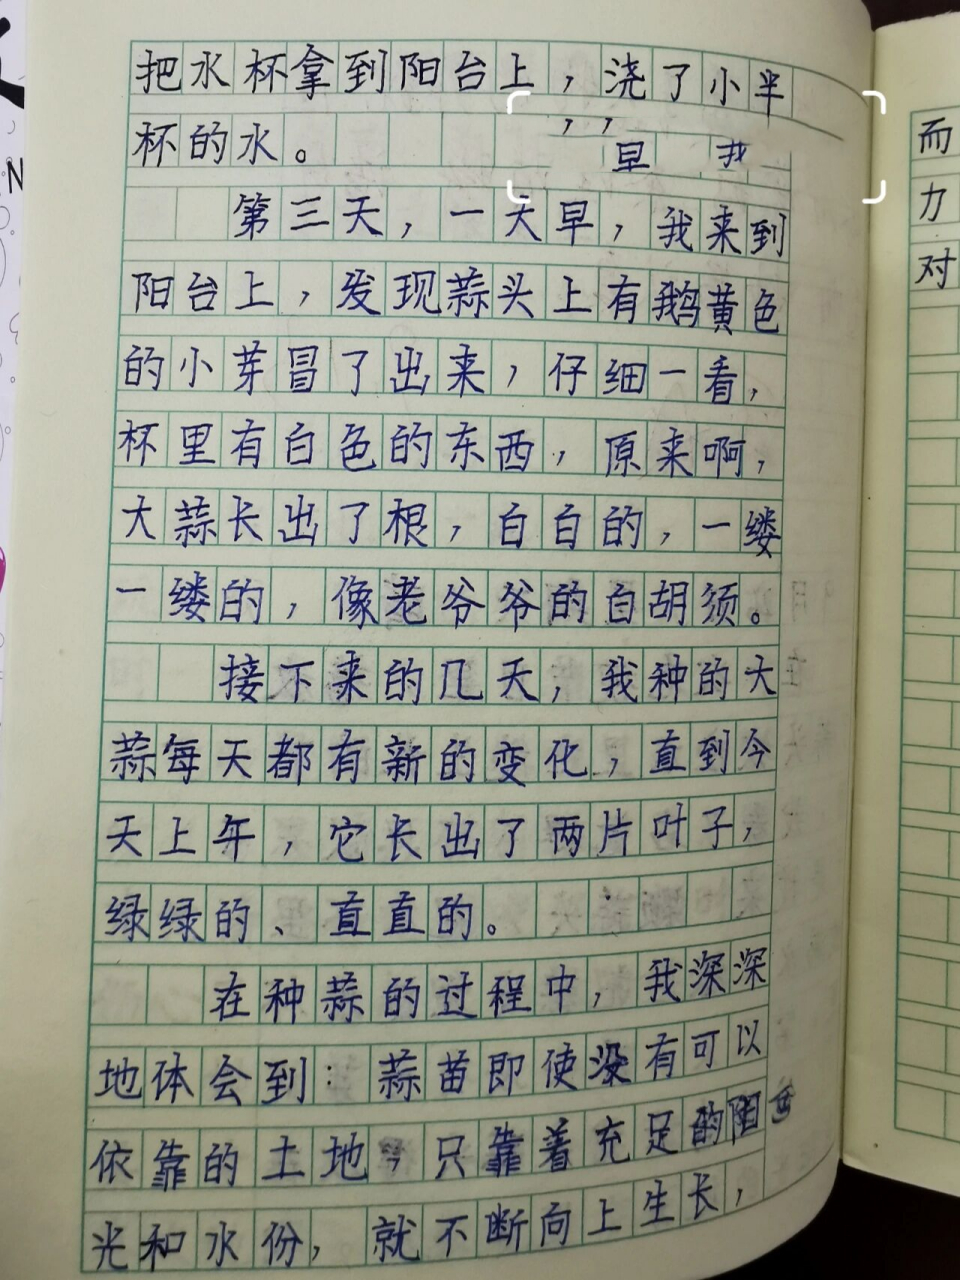 把水杯拿到阳台上，浇了小半
杯的水。
早 我
第三天，一大早，我来到
阳台上，发现蒜头上有鹅黄色
的小芽冒了出来，仔细一看，
杯里有白色的东西，原来啊，
大蒜长出了根，白白的，一缕
一缕的，像老爷爷的白胡须。
接下来的几天，我种的大
蒜每天都有新的变化，直到今
天上午，它长出了两片叶子，
绿绿的、直直的。
在种蒜的过程中，我深深
地体会到：蒜苗即使没有可以
依靠的土地，只靠着充足的阳
光和水份，就不断向上生长，
而
力
对
N